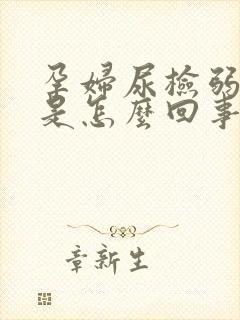 孕婦尿檢弱
是怎麼回事
章新生